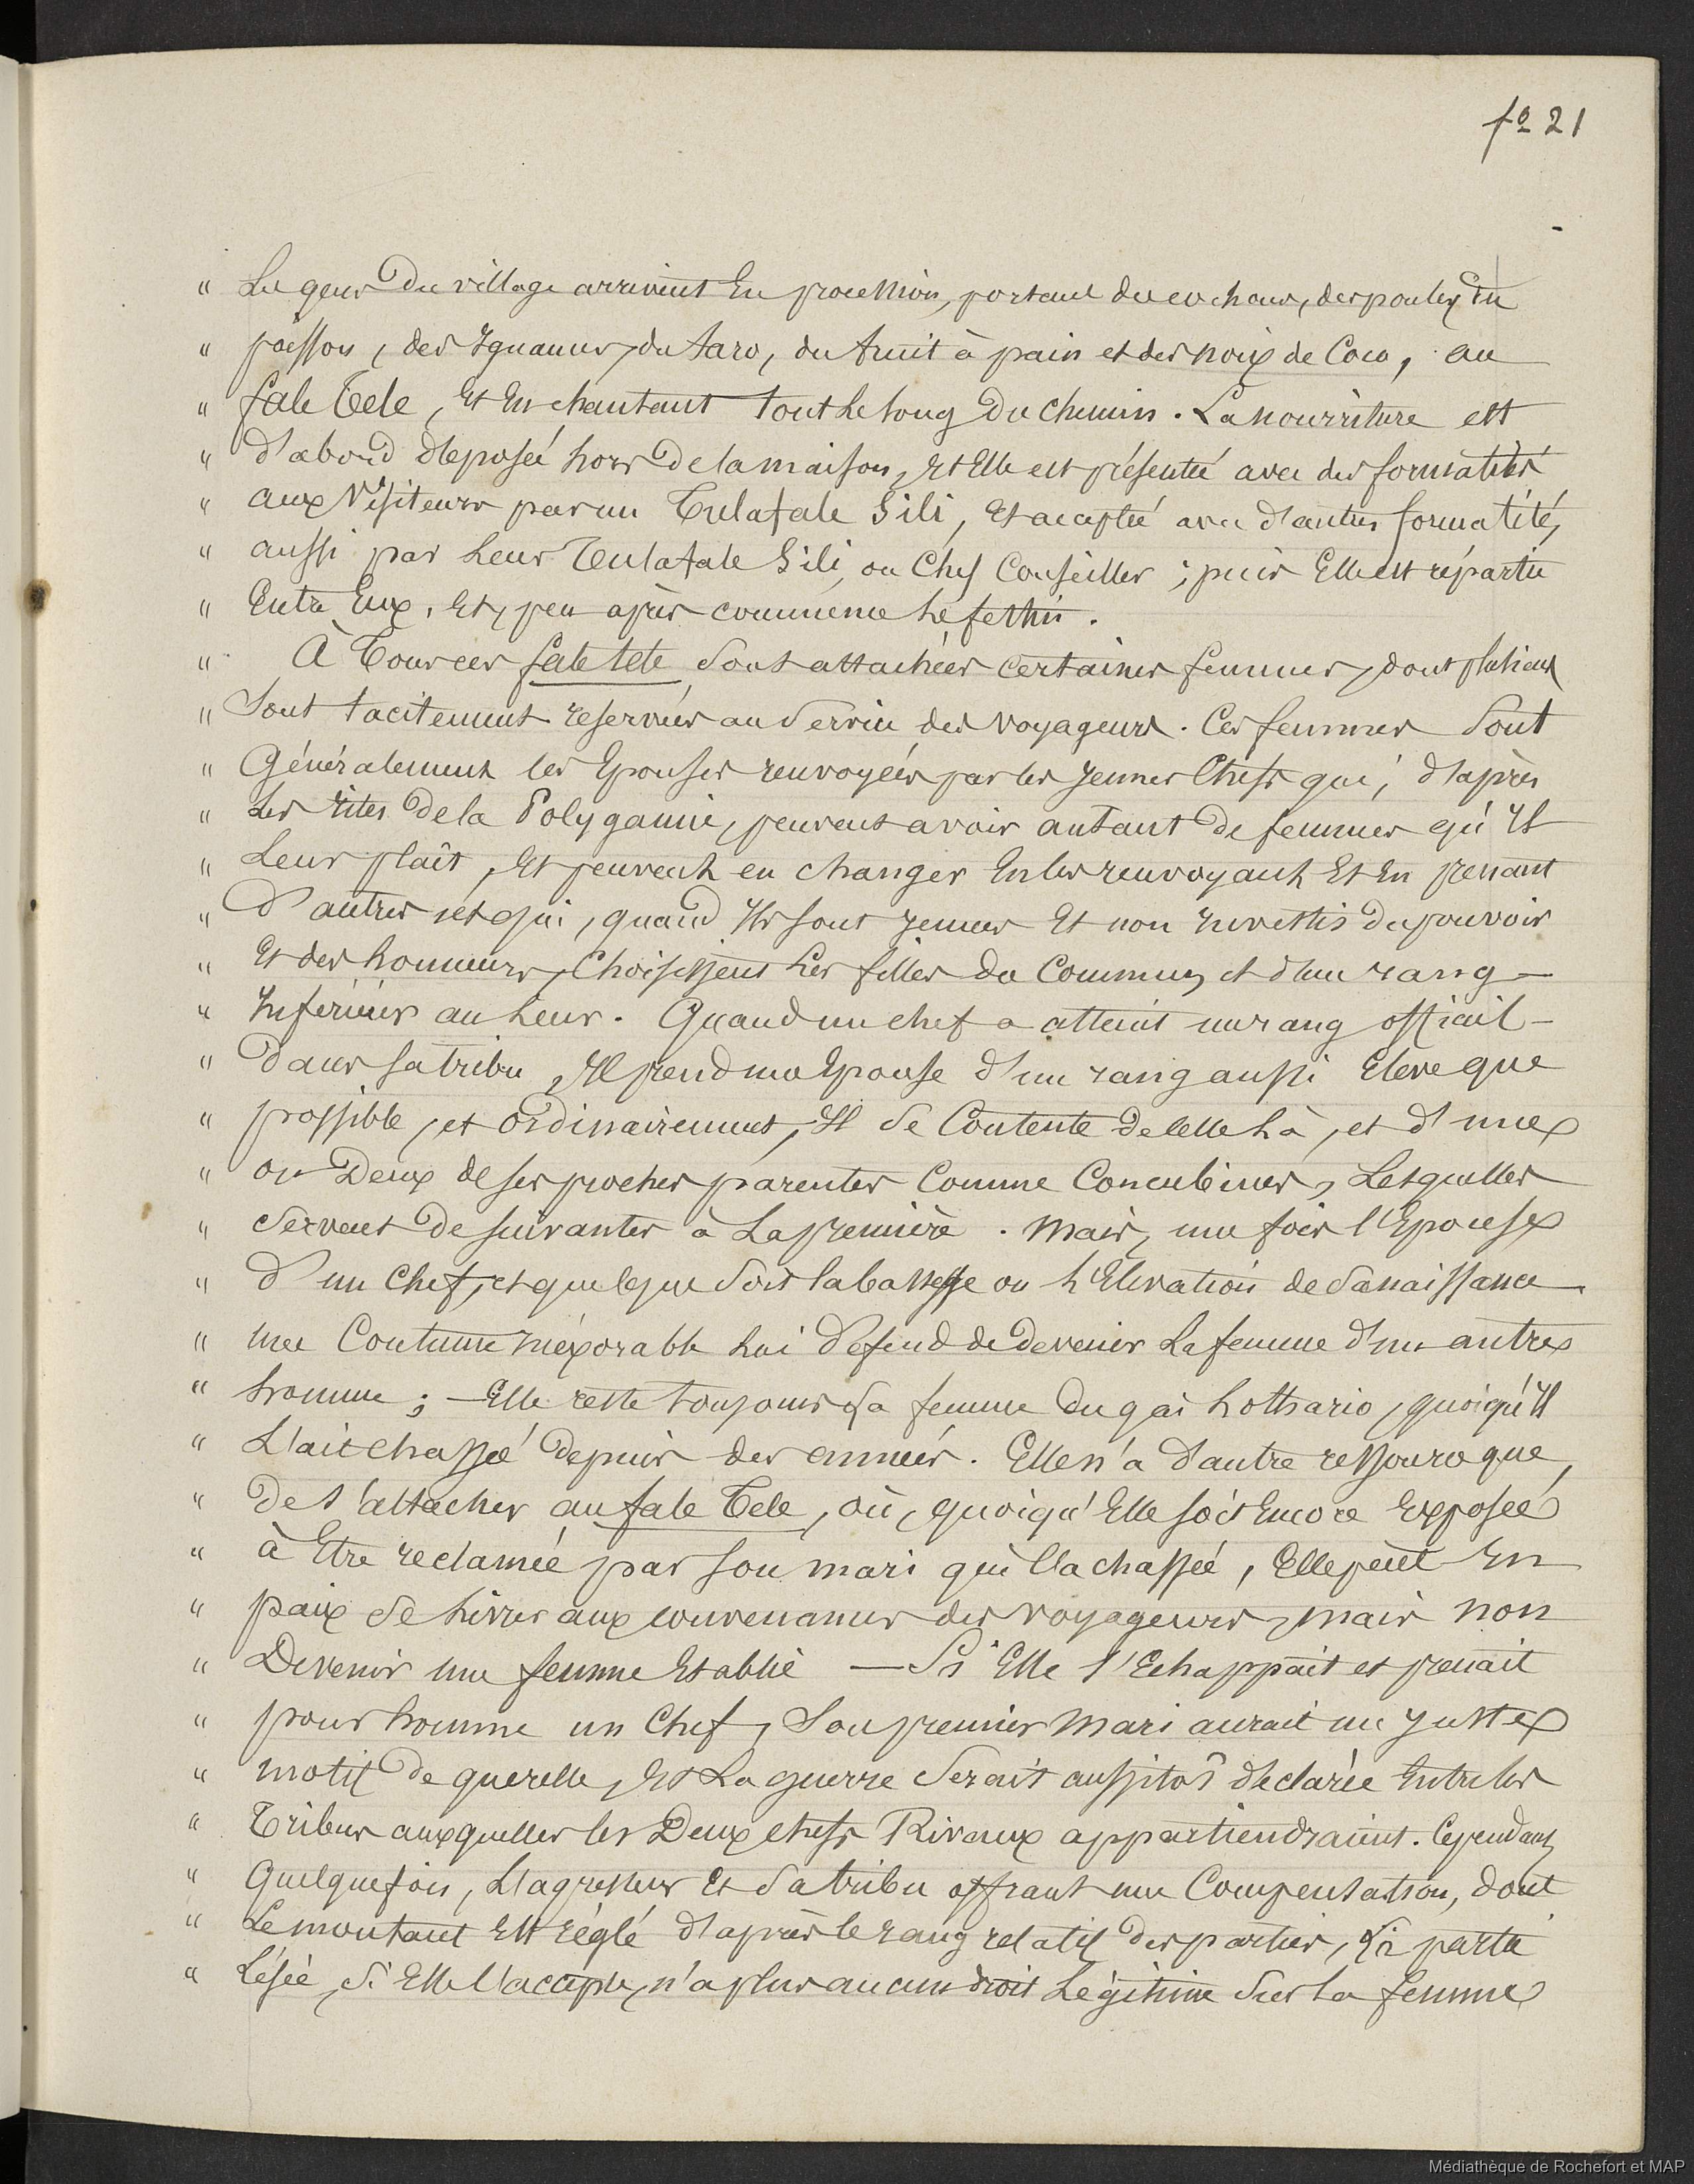 fº 21
" Les gens Du village arrivent En procession, portant des cochons, des poules, Du
" poisson, des Ignames, du taro, du fruit à pain et des noix de Coco, au
" fale Tele, Et En chantant tout Le long Du Chemin. La nourriture est
" D'abord déposée hors De la maison, Et Elle est présentée avec des formalités
" aux Visiteurs par un Tulafale Sili, Et acceptée avec d'autres formalités,
" aussi par Leur Tulafale Sili, ou Chef Conseiller ; puis Elle est répartie
" Entre Eux, Et, peu après commence Le festin.
" À Tous ces fale tele Sont attachées certaines femmes, dont plusieurs
" Sont tacitement reservées au Service des voyageurs. Ces femmes Sont
" Généralement les Epouses renvoyées par les Jeunes Chefs qui, d'après
" Les rites De la Polygamie, peuvent avoir autant De femmes qu'Il
" Leur plaît, Et peuvent en changer En les renvoyant Et En prenant
" D'autres, et qui, quand Ils sont Jeunes Et non revettis du pouvoir
" Et des honneurs, Choisissent Les filles du Commun, et d'un rang
" Inférieur au Leur. Quand un chef a atteint un rang officiel
" Dans Sa tribu, Il prend une Epouse d'un rang aussi Eleve que
" possible, et Ordinairement, Il Se Contente De celle Là, et d'une
" ou Deux de ses proches parentes Comme Concubines, Lesquelles
" Servent De suivantes à La première. Mais, une fois l'Epouse
" D'un Chef, et quelque Soit la bassesse ou L'Elévation de Sa naissance
" une Coutume Inéxorable Lui Défend de Devenir La femme d'un autre
" homme ; — Elle reste toujours La femme du gai Lothario, quoiqu'Il
" L'ait chassée Depuis des années. Elle n'a D'autre ressource que,
" De S'attacher au fale Tele, où, quoiqu'Elle soit Encore Exposée
" à Etre reclamée par son mari qui l'a chassée, Elle peut En
" paix Se Livrer aux convenances des voyageurs, mais non
" Devenir une femme Etablie — Si Elle S'Echappait et prenait
" pour homme un Chef, Son premier Mari aurait un Juste
" motif De querelle, Et La guerre Serait aussitot déclarée Entre les
" Tribus auxquelles les Deux chefs Rivaux appartiendraient. Cependant
" Quelquefois, L'agresseur Et Sa tribu offrant une Compensation, dont
" Le montant Est réglé D'après le rang relatif des parties, La partie
" Lésée, Si Elle l'accepte, n'a plus aucun droit Légitime Sur la femme
Médiathèque de Rochefort et MAP